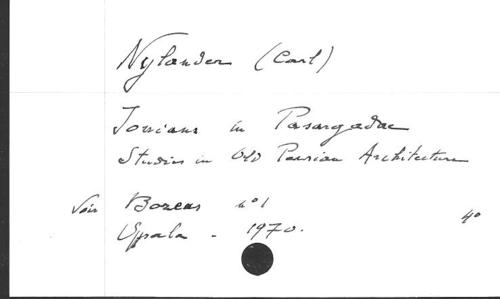 Nylander (Carl)
Ionians in Pasargadae
Studies in Old Persian Architecture
Voir Boreas n°1
Uppsala - 1970.
4°